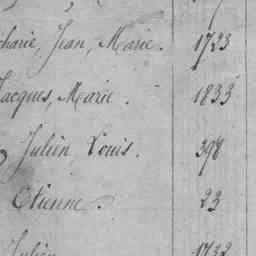 charie, Jean, Marie. 1723
Jacques, Marie. 1833
Julien, Louis. 398
Etienne. 23
Julien 1732